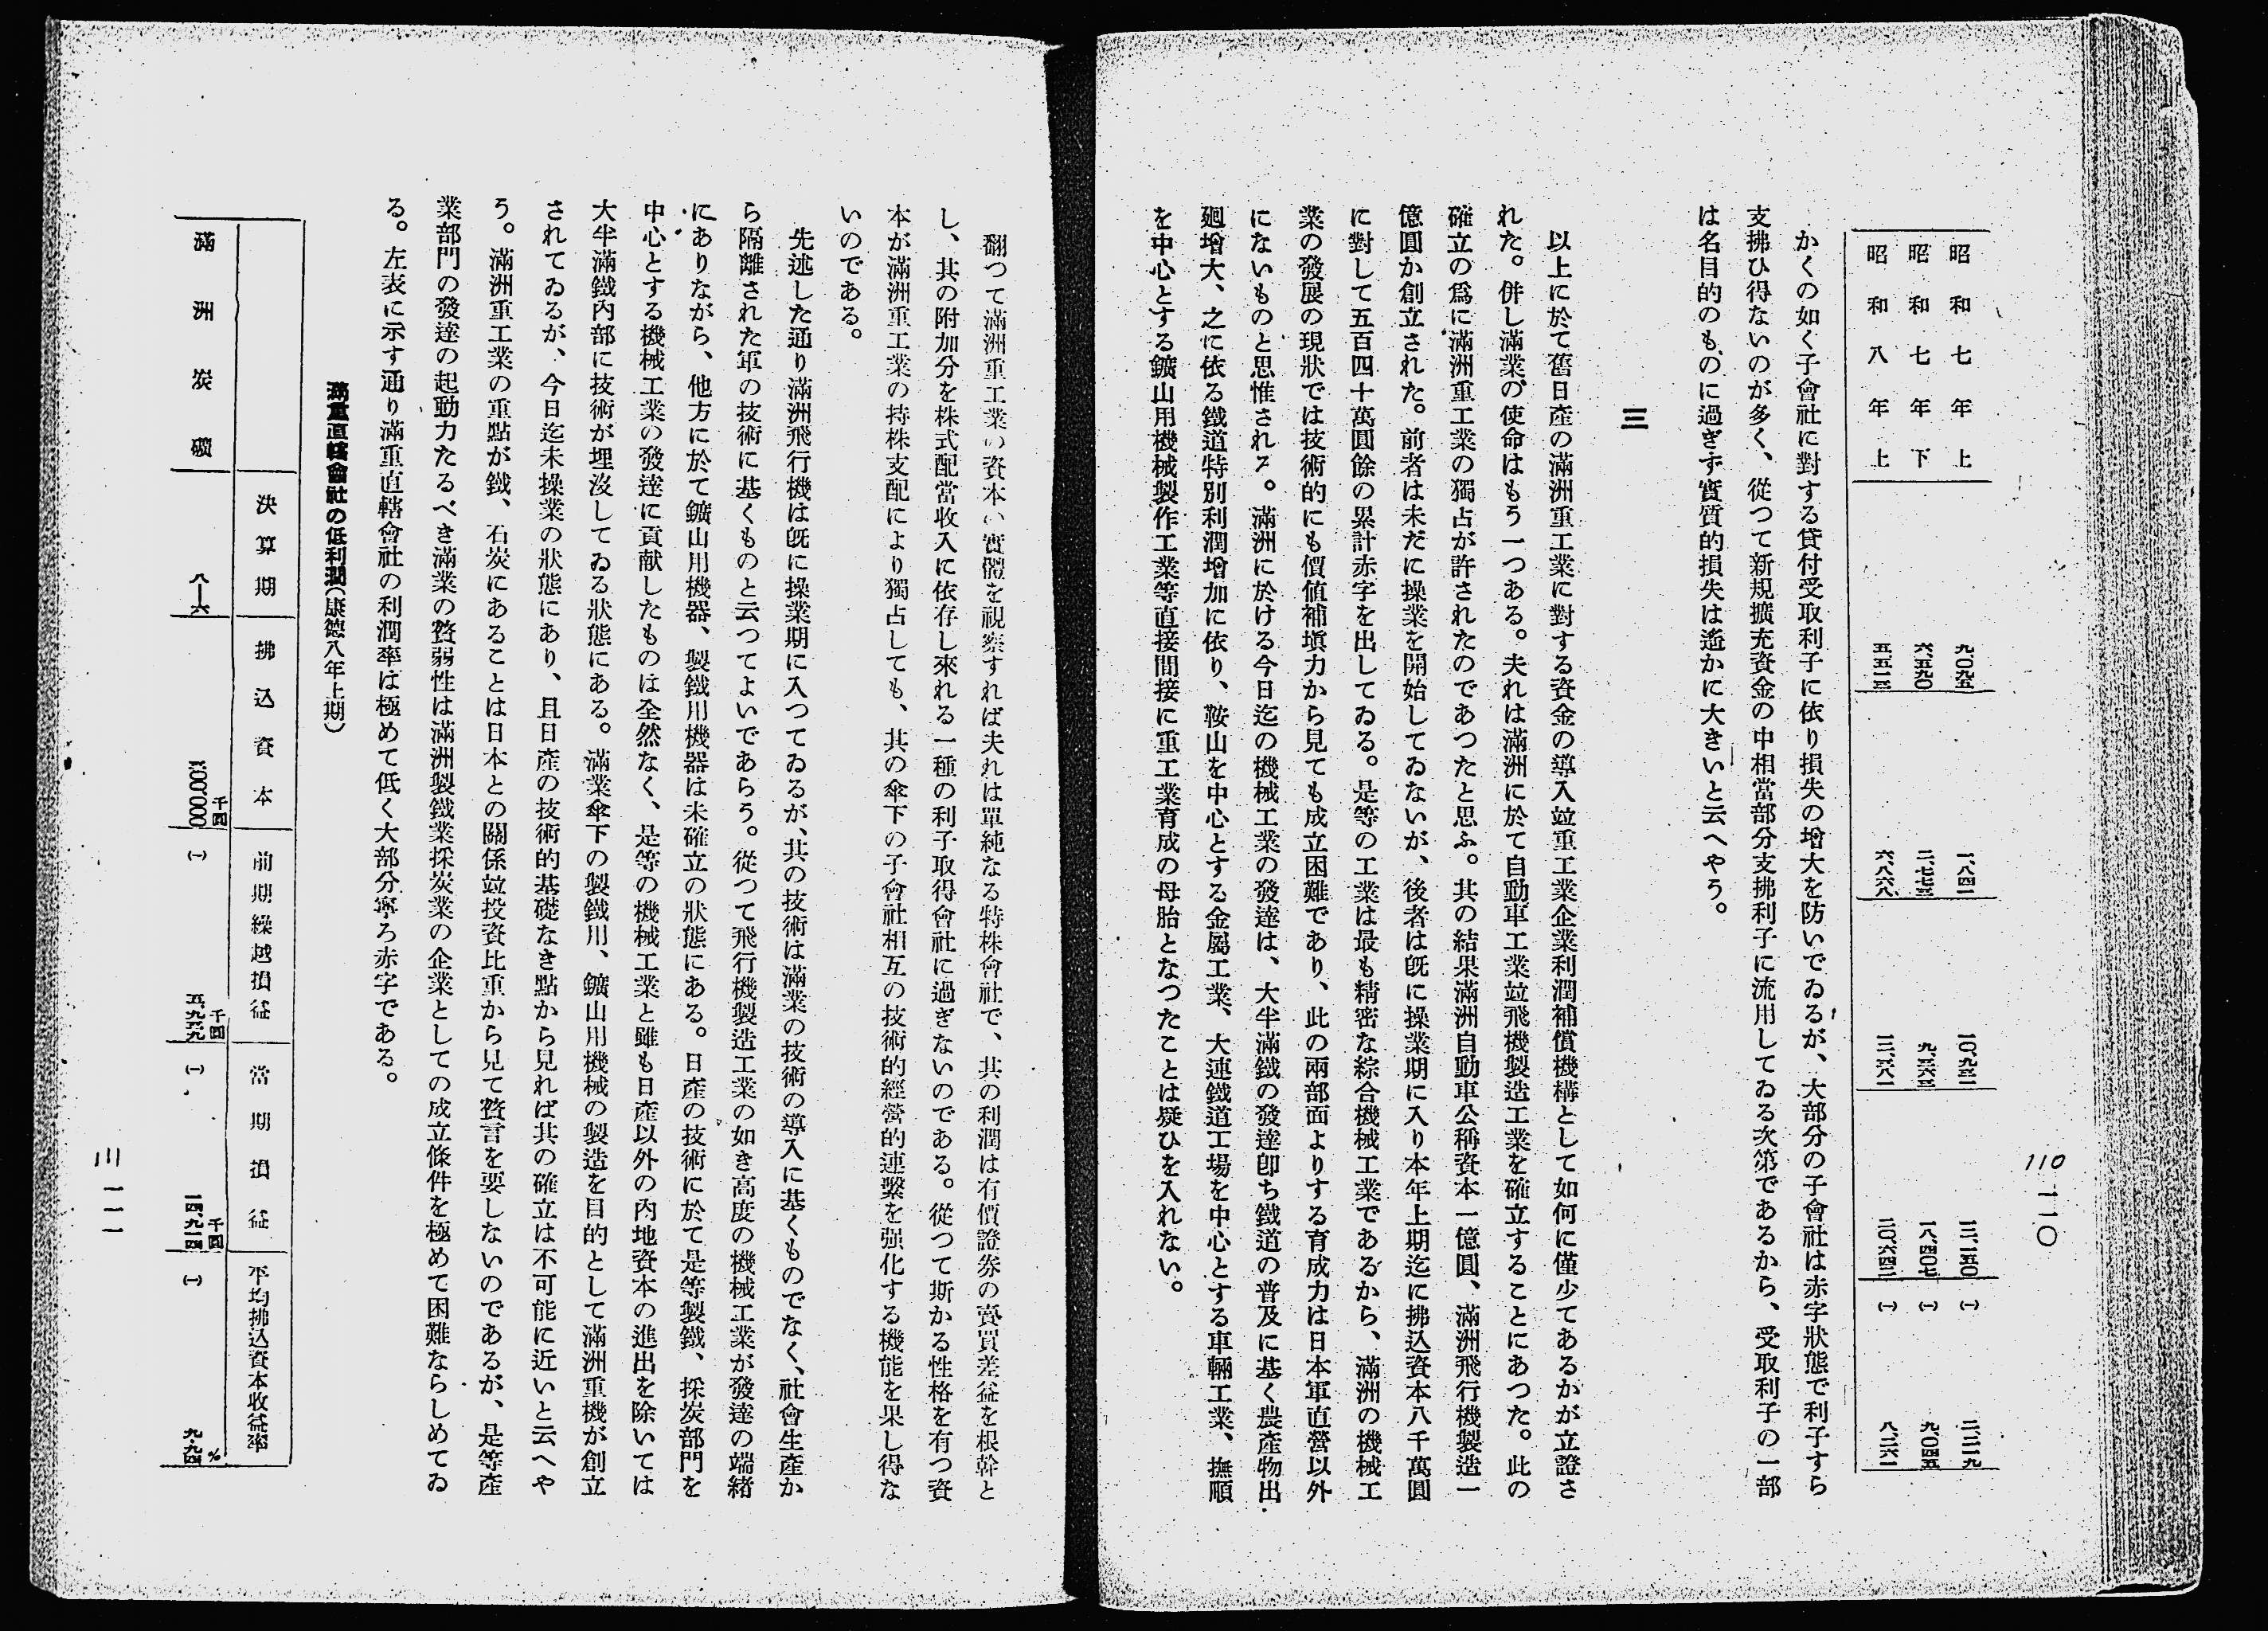 110
一一〇
昭和七年上 九、〇九五 一、八四一 一〇、九三一 一三、一五〇 (一) 二、二一九
昭和七年下 六、五九〇 二、七七三 九、三六三 一八、四〇七 (一) 九、〇四五
昭和八年上 五、五一三 六、八六八 一二、三八一 二〇、六四二 (一) 八、二六一
かくの如く子會社に對する貸付受取利子に依り損失の增大を防いでゐるが、大部分の子會社は赤字狀態で利子すら
支拂ひ得ないのが多く、從つて新規擴充資金の中相當部分支拂利子に流用してゐる次第であるから、受取利子の一部
は名目的のものに過ぎず實質的損失は遙かに大きいと云へやう。
三
以上に於て舊日產の滿洲重工業に對する資金の導入竝重工業企業利潤補償機構として如何に僅少てあるかが立證さ
れた。併し滿業の使命はもう一つある。夫れは滿洲に於て自動車工業竝飛機製造工業を確立することにあつた。此の
確立の爲に滿洲重工業の獨占が許されたのであつたと思ふ。其の結果滿洲自動車公稱資本一億圓、滿洲飛行機製造一
億圓か創立された。前者は未だに操業を開始してゐないが、後者は旣に操業期に入り本年上期迄に拂込資本八千萬圓
に對して五百四十萬圓餘の累計赤字を出してゐる。是等の工業は最も精密な綜合機械工業であるから、滿洲の機械工
業の發展の現狀では技術的にも價値補塡力から見ても成立困難であり、此の兩部面よりする育成力は日本軍直營以外
にないものと思惟される。滿洲に於ける今日迄の機械工業の發達は、大半滿鐵の發達卽ち鐵道の普及に基く農產物出
廻增大、之に依る鐵道特別利潤增加に依り、鞍山を中心とする金屬工業、大連鐵道工場を中心とする車輛工業、撫順
を中心とする鑛山用機械製作工業等直接間接に重工業育成の母胎となつたことは疑ひを入れない。
翻つて滿洲重工業の資本の實體を視察すれば夫れは單純なる特株會社で、其の利潤は有價證券の賣買差益を根幹と
し、其の附加分を株式配當收入に依存し來れる一種の利子取得會社に過ぎないのである。從つて斯かる性格を有つ資
本が滿洲重工業の持株支配により獨占しても、其の傘下の子會社相互の技術的經營的連繫を强化する機能を果し得な
いのである。
先述した通り滿洲飛行機は旣に操業期に入つてゐるが、其の技術は滿業の技術の導入に基くものでなく、社會生產か
ら隔離された軍の技術に基くものと云つてよいであらう。從つて飛行機製造工業の如き高度の機械工業が發達の端緖
にありながら、他方に於て鑛山用機器、製鐵用機器は未確立の狀態にある。日產の技術に於て是等製鐵、採炭部門を
中心とする機械工業の發達に貢献したものは全然なく、是等の機械工業と雖も日產以外の內地資本の進出を除いては
大半滿鐵內部に技術が埋沒してゐる狀態にある。滿業傘下の製鐵用、鑛山用機械の製造を目的として滿洲重機が創立
されてゐるが、今日迄未操業の狀態にあり、且日產の技術的基礎なき點から見れば其の確立は不可能に近いと云へや
う。滿洲重工業の重點が鐵、石炭にあることは日本との關係竝投資比重から見て贅言を要しないのであるが、是等產
業部門の發達の起動力たるべき滿業の脊弱性は滿洲製鐵業採炭業の企業としての成立條件を極めて困難ならしめてゐ
る。左表に示す通り滿重直轄會社の利潤率は極めて低く大部分寧ろ赤字である。
滿重直轄會社の低利潤(康德八年上期)
決算期 拂込資本 前期繰越損益 當期損益 平均拂込資本收益率
滿洲炭礦 八—六 千圓 (一) 千圓 五、九六九 (一) 千圓 一四、九一四 (一) % 九・九四
111
一一一